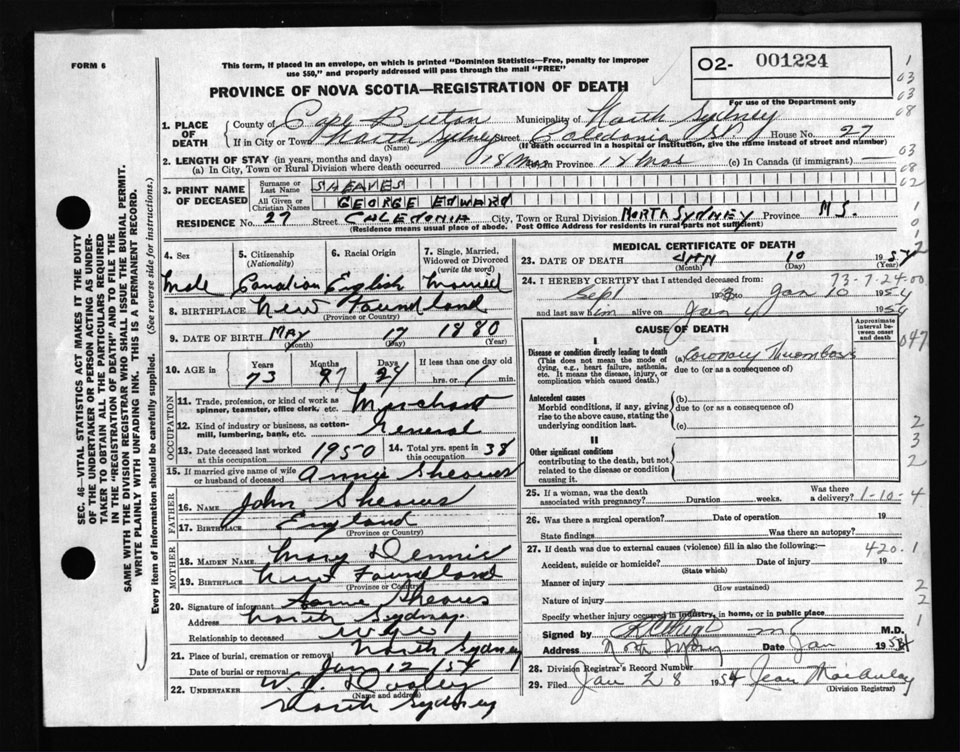 FORM 6
This form, if placed in an envelope, on which is printed "Dominion Statistics—Free, penalty for improper
use $50," and properly addressed will pass through the mail "FREE"
02- 001224
For use of the Department only
PROVINCE OF NOVA SCOTIA—REGISTRATION OF DEATH
1. PLACE OF DEATH
County of Cape Breton Municipality of North Sydney
If in City or Town North Sydney Street Caledonia St. House No. 27
(Name) (If death occurred in a hospital or institution, give the name instead of street and number)
2. LENGTH OF STAY (in years, months and days)
(a) In City, Town or Rural Division where death occurred 18 Mos In Province 18 Mos (c) In Canada (if immigrant) —
3. PRINT NAME OF DECEASED
Surname or Last Name SHEAVES
All Given or Christian Names GEORGE EDWARD
RESIDENCE No. 27 Street CALEDONIA City, Town or Rural Division NORTH SYDNEY Province N.S.
(Residence means usual place of abode. Post Office Address for residents in rural parts not sufficient)
4. Sex Male
5. Citizenship (Nationality) Canadian
6. Racial Origin English
7. Single, Married, Widowed or Divorced (write the word) Married
8. BIRTHPLACE New Foundland
(Province or Country)
9. DATE OF BIRTH MAY 17 1880
(Month) (Day) (Year)
10. AGE in Years Months Days If less than one day old
73 7 24 hrs. or min.
OCCUPATION
11. Trade, profession, or kind of work as spinner, teamster, office clerk, etc. Merchant
12. Kind of industry or business, as cotton-mill, lumbering, bank, etc. General
13. Date deceased last worked at this occupation 1950 14. Total yrs. spent in this occupation 38
15. If married give name of wife or husband of deceased Annie Sheaves
FATHER
16. NAME John Sheaves
17. BIRTHPLACE England
(Province or Country)
MOTHER
18. MAIDEN NAME Mary Dennis
19. BIRTHPLACE New Foundland
(Province or Country)
20. Signature of informant Annie Sheaves
Address North Sydney
Relationship to deceased Wife
21. Place of burial, cremation or removal North Sydney
Date of burial or removal Jan 12/54
22. UNDERTAKER W. J. Dooley
(Name and address)
North Sydney
MEDICAL CERTIFICATE OF DEATH
23. DATE OF DEATH JAN 10 1954
(Month) (Day) (Year)
73-7-24-00
24. I HEREBY CERTIFY that I attended deceased from:
Sept 195 to Jan 10 1954
and last saw him alive on Jan 4 1954
CAUSE OF DEATH
Approximate interval between onset and death
I
Disease or condition directly leading to death (a) Coronary Thrombosis
(This does not mean the mode of dying, e.g., heart failure, asthenia, etc. It means the disease, injury, or complication which caused death.)
due to (or as a consequence of)
Antecedent causes
Morbid conditions, if any, giving rise to the above cause, stating the underlying condition last.
(b)
due to (or as a consequence of)
(c)
II
Other significant conditions
contributing to the death, but not related to the disease or condition causing it.
25. If a woman, was the death associated with pregnancy? Duration weeks. Was there a delivery? 1-10-4
26. Was there a surgical operation? Date of operation 19
State findings Was there an autopsy?
27. If death was due to external causes (violence) fill in also the following:— 420.1
Accident, suicide or homicide? Date of injury 19
(State which)
Manner of injury
(How sustained)
Nature of injury
Specify whether injury occurred in industry, in home, or in public place
Signed by M.D.
Address North Sydney Date Jan 1954
28. Division Registrar's Record Number
29. Filed Jan 28 1954 Jean MacAulay
(Division Registrar)
SEC. 46—VITAL STATISTICS ACT MAKES IT THE DUTY
OF THE UNDERTAKER OR PERSON ACTING AS UNDER-
TAKER TO OBTAIN ALL THE PARTICULARS REQUIRED
IN THE "REGISTRATION OF DEATH" AND TO FILE THE
SAME WITH THE DIVISION REGISTRAR WHO SHALL ISSUE THE BURIAL PERMIT.
WRITE PLAINLY WITH UNFADING INK. THIS IS A PERMANENT RECORD.
Every item of information should be carefully supplied. (See reverse side for instructions.)
1
03
03
08
03
08
02
1
047
2
3
2
2
2
1